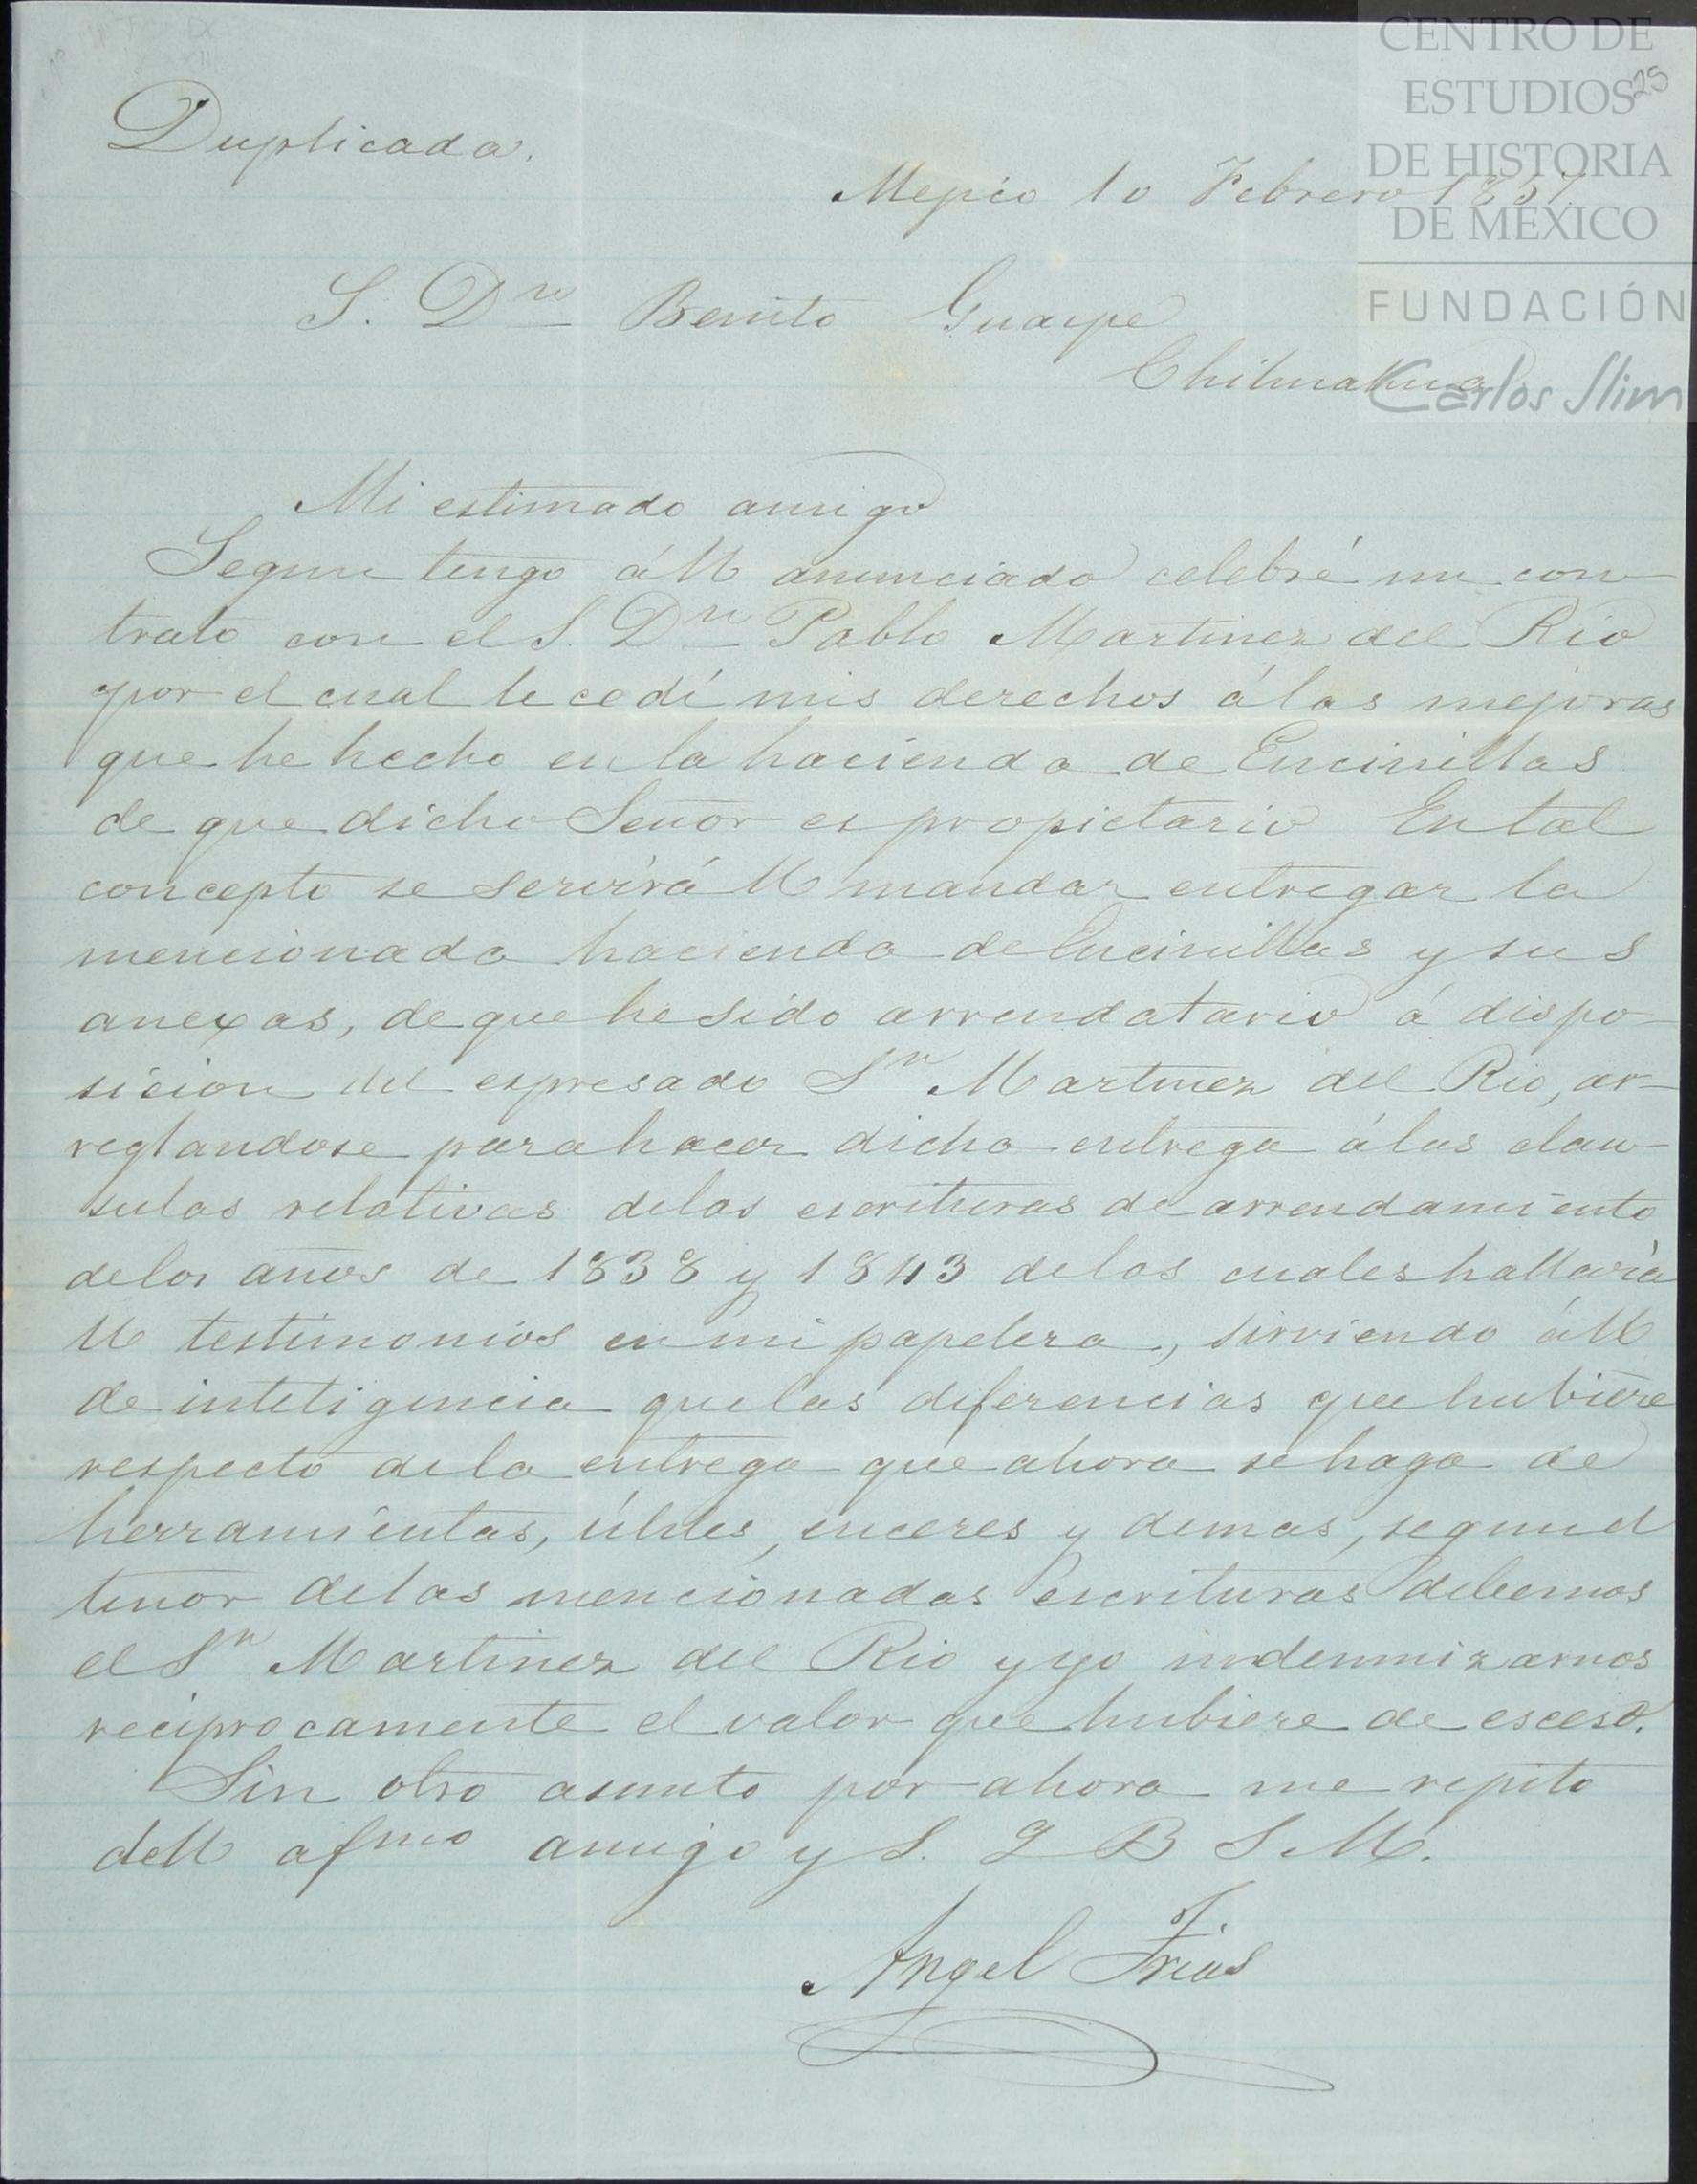 CENTRO DE
ESTUDIOS 25
DE HISTORIA
DE MÉXICO
FUNDACIÓN
Carlos Slim
Duplicada.
Mejico 10 Febrero 1851.
S. Dn Benito Guaspe
Chihuahua
Mi estimado amigo
Segun tengo á U anunciado celebré un con-
trato con el S. Dn Pablo Martinez del Rio
por el cual le cedí mis derechos á las mejoras
que he hecho en la hacienda de Encinillas
de que dicho Señor es propietario En tal
concepto se servirá U mandar entregar la
mencionada hacienda de Encinillas y sus
anexas, de que he sido arrendatario á dispo-
sicion del espresado Sr Martinez del Rio, ar-
reglandose para hacer dicha entrega á las clau-
sulas relativas de las escrituras de arrendamiento
de los años de 1838 y 1843 de las cuales hallará
U testimonios en mi papelera, sirviendo á U
de inteligencia que las diferencias que hubiere
respecto de la entrega que ahora se haga de
herramientas, útiles, enceres y demas, segun el
tenor de las mencionadas escrituras debemos
el Sr Martinez del Rio y yo indemnizarnos
reciprocamente el valor que hubiere de esceso.
Sin otro asunto por ahora me repito
de U afmo amigo y S. Q B S M.
Angel Trias